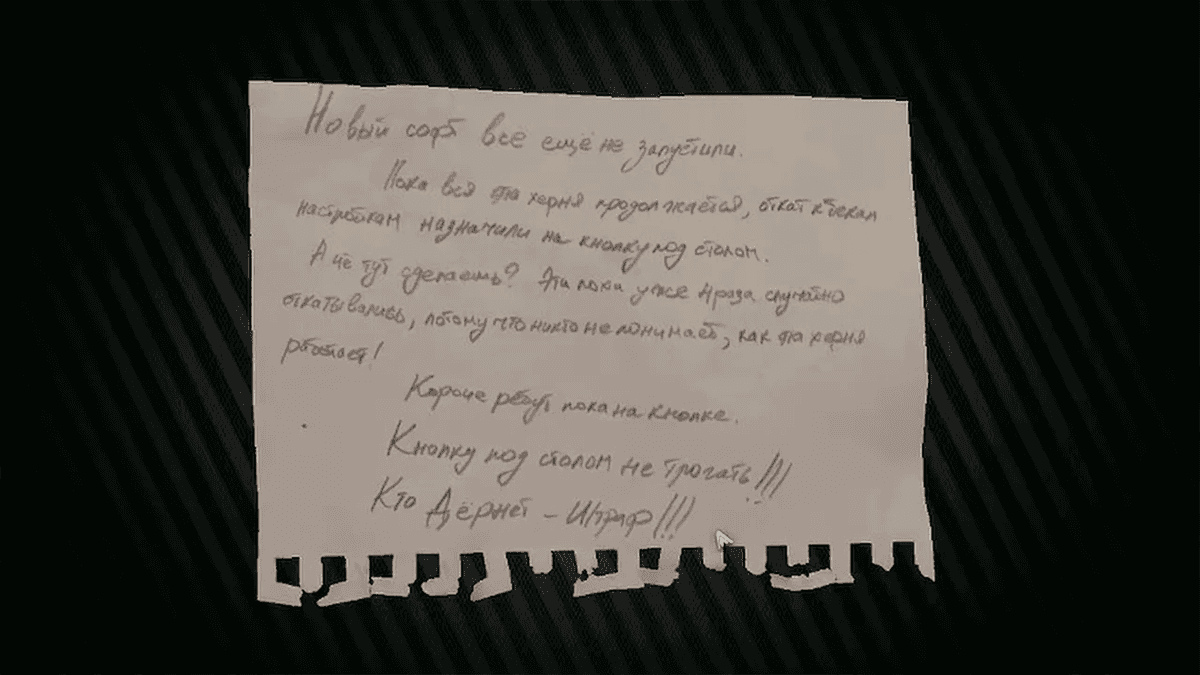 Новый софт всё ещё не запустили.
Пока вся эта херня продолжается, откат к бекап
настройкам назначили на кнопку под столом.
А чё тут сделаешь? Эти пока уже 4 раза случайно
откатывались, потому что никто не понимает, как эта херня
работает!
Короче ребут пока на кнопке.
Кнопку под столом не трогать!!!
Кто Дёрнет – Штраф!!!